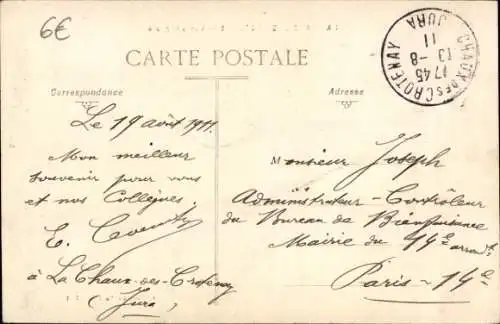 6€
CARTE POSTALE
CHAUX DES CROTENAY
1745
13-8
11
JURA
Correspondance
Adresse
Le 19 août 1911.
Mon meilleur
souvenir pour vous
et nos Collègues
E.
à La Chaux-des-Crotenay
(Jura)
Monsieur Joseph
Administrateur-Contrôleur
du Bureau de Bienfaisance
Mairie du 14e arrondt
Paris-14e